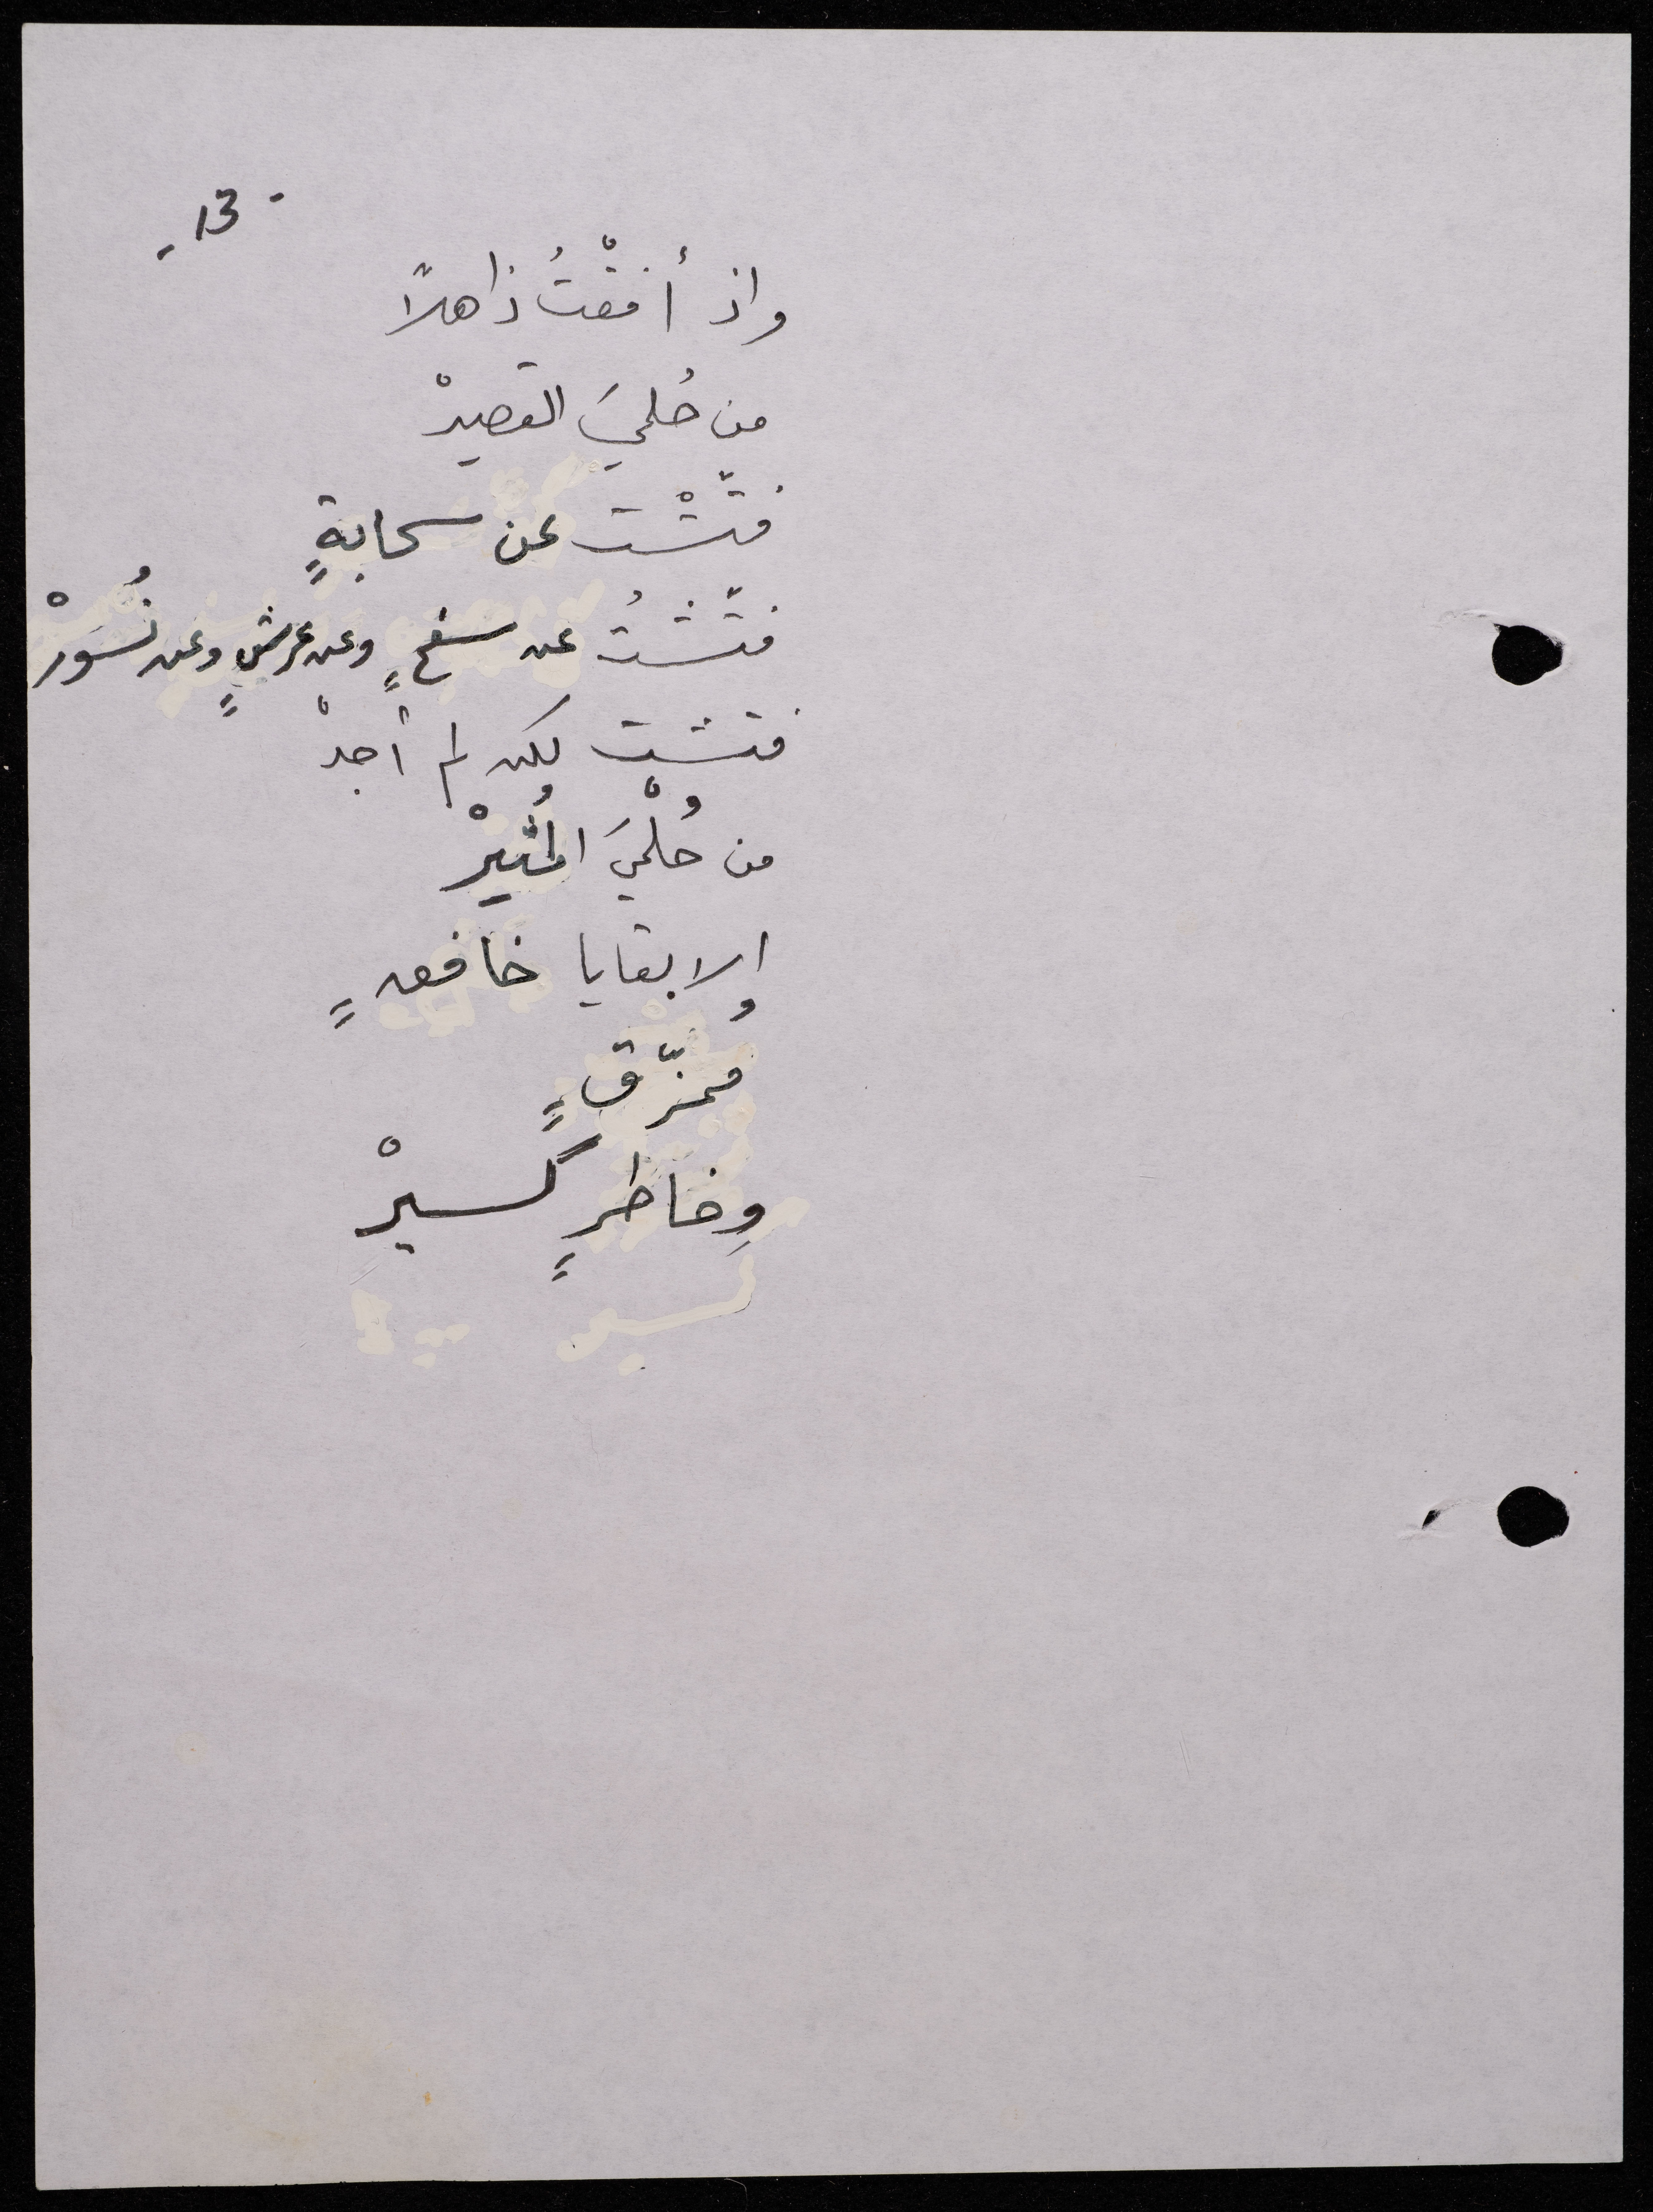 - 13 -
واذ أفقْتُ ذاهلاً
من حُلميَ القصيرْ
فتّشْت عن سحابةٍ
فتّشتُ عن سفحٍ وعن عرشٍ وعن نُسُورْ
فتشت لكن لم أجدْ
من حُلْميَ المُثيرْ
إلا بقايا خافقٍ
مُمزّقٍ
وخاطرٍ كسيرْ